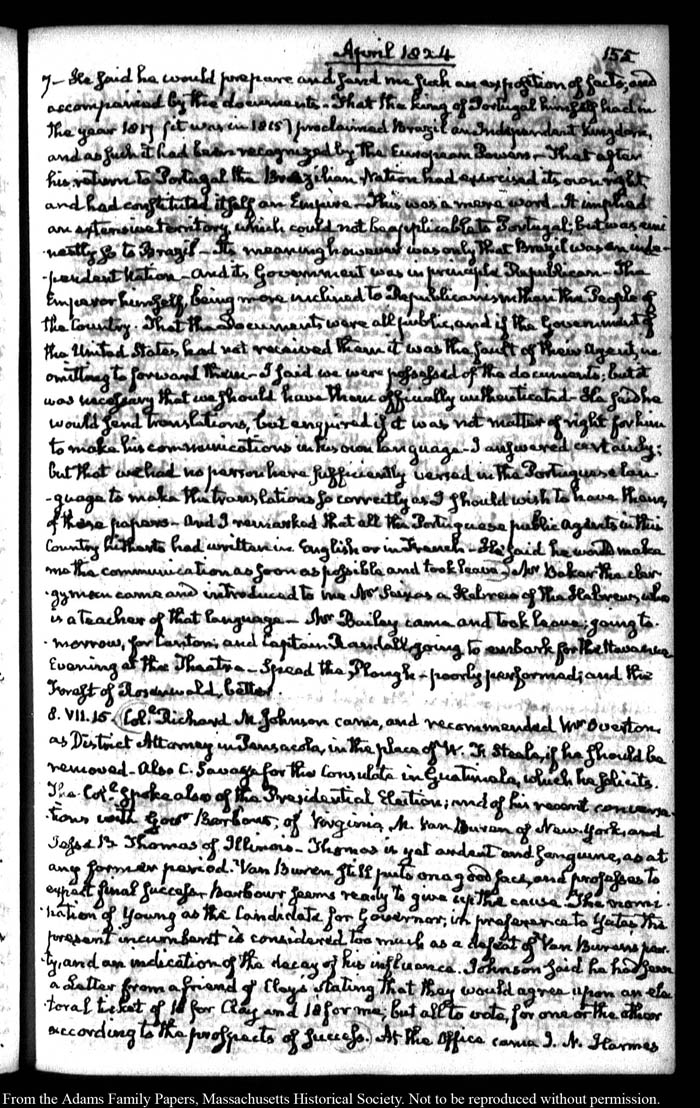 April 1824 155
7 — He said he would prepare and send me such an exposition of facts, and
accompanied by the documents. That the king of Portugal himself had in
the year 1817 (it was in 1815) proclaimed Brazil an Independent kingdom,
and as such it had been recognized by the European Powers — That after
his return to Portugal the Brazilian Nation had exercised its own right
and had constituted itself an Empire — This was a mere word. It implied
an extensive territory, which could not be applicable to Portugal; but was emi-
-nently so to Brazil — Its meaning however was only that Brazil was an inde-
-pendent Nation — and its Government was in principle Republican — The
Emperor himself, being more inclined to Republicanism than the People of
the Country. That the Documents were all public, and if the Government of
the United States had not received them it was the fault of their Agent, in
omitting to forward them — I said we were possessed of the documents; but it
was necessary that we should have them officially authenticated — He said he
would send translations, but enquired if it was not matter of right for him
to make his communications in his own language — I answered certainly;
but that we had no person here sufficiently versed in the Portuguese lan-
-guage to make the translations so correctly as I should wish to have them,
of these papers — And I remarked that all the Portuguese public Agents in this
Country hitherto had written in English or in French — He said he would make
me the communication as soon as possible and took leave) Mr Baker the cler-
-gyman came and introduced to me Mr Seixas a Hebrew of the Hebrews, who
is a teacher of that language — Mr Bailey came and took leave; going to-
-morrow, for Canton; and Captain Randall, going to embark for the Havanna
Evening at the Theatre — Speed the Plough — poorly performed; and the
Forest of Rosenwald, better.
8. VII.15. (Colo. Richard M. Johnson came, and recommended Mr Overton,
as District Attorney in Pensacola, in the place of W. F. Steele, if he should be
removed — Also C. Savage for the Consulate in Guatimala, which he solicits.
The Colo. spoke also of the Presidential Election; and of his recent conversa-
-tions with Govr Barbour, of Virginia, M. Van Buren of New-York, and
Jesse B. Thomas of Illinois — Thomas is yet ardent and sanguine, as at
any former period. Van Buren still puts on a good face, and professes to
expect final success — Barbour seems ready to give up the cause. The nomi-
-nation of Young as the Candidate for Governor, in preference to Yates the
present incumbent is considered too much as a defeat of Van Buren's par-
-ty, and an indication of the decay of his influence. Johnson said he had seen
a Letter from a friend of Clay's stating that they would agree upon an elec-
toral ticket of 18 for Clay and 18 for me, but all to vote, for one or the other
according to the prospects of success.) At the Office came J. N. Harmes
From the Adams Family Papers, Massachusetts Historical Society. Not to be reproduced without permission.